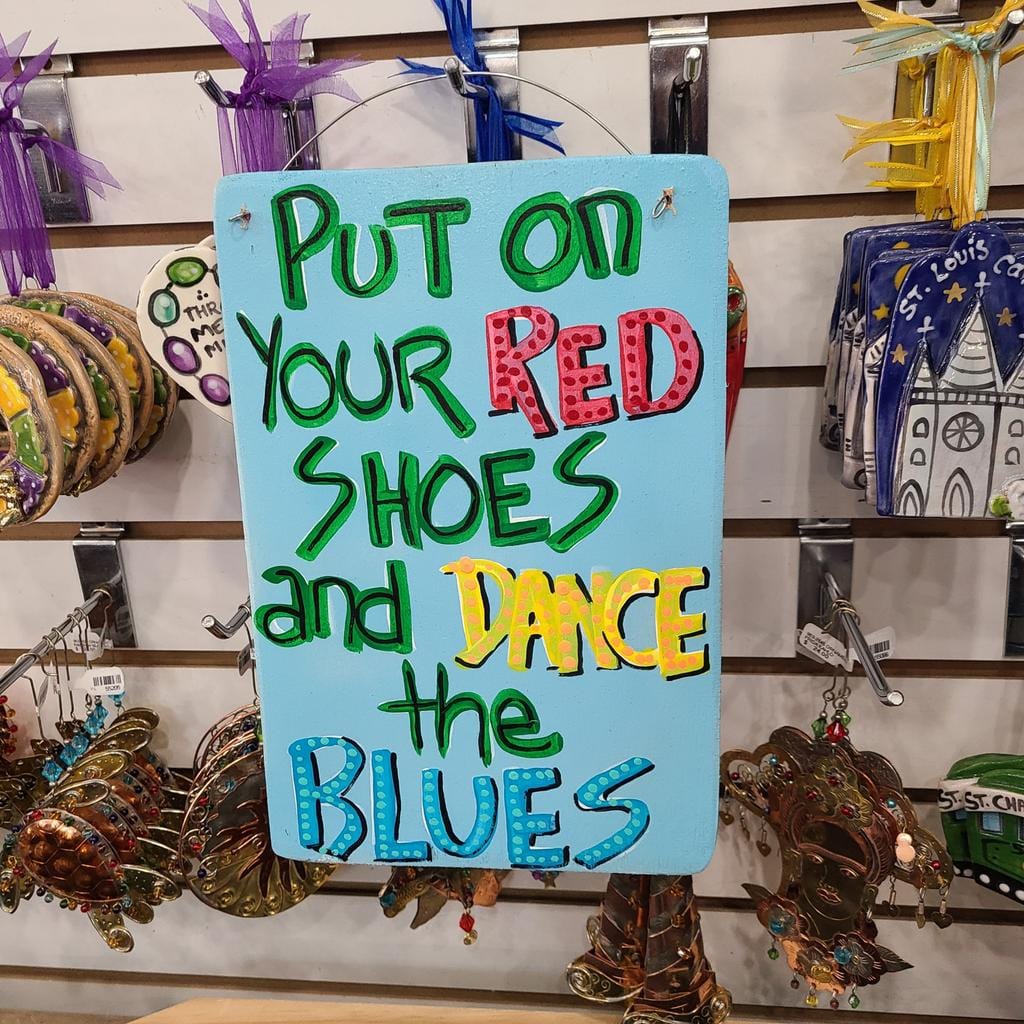 PUT on
YOUR RED
SHOES
and DANCE
the
BLUES
THR
ME
M
ST. LOUIS Ca
ST. ST. CHA